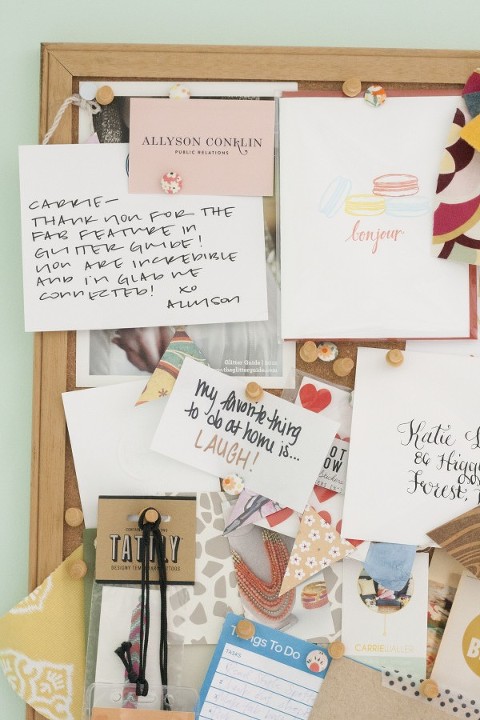 ALLYSON CONKLIN
PUBLIC RELATIONS
CARRIE—
THANK YOU FOR THE
FAB FEATURE IN
GLITTER GUIDE!
YOU ARE INCREDIBLE
AND I'M GLAD WE
CONNECTED! XO
ALLYSON
bonjour
Glitter Guide
theglitterguide.com
my favorite thing
to do at home is...
LAUGH!
Katie
86 Higg
Forest,
TATTLY
DESIGNY TEMPORARY TATTOOS
Things To Do
TASKS
CARRIE